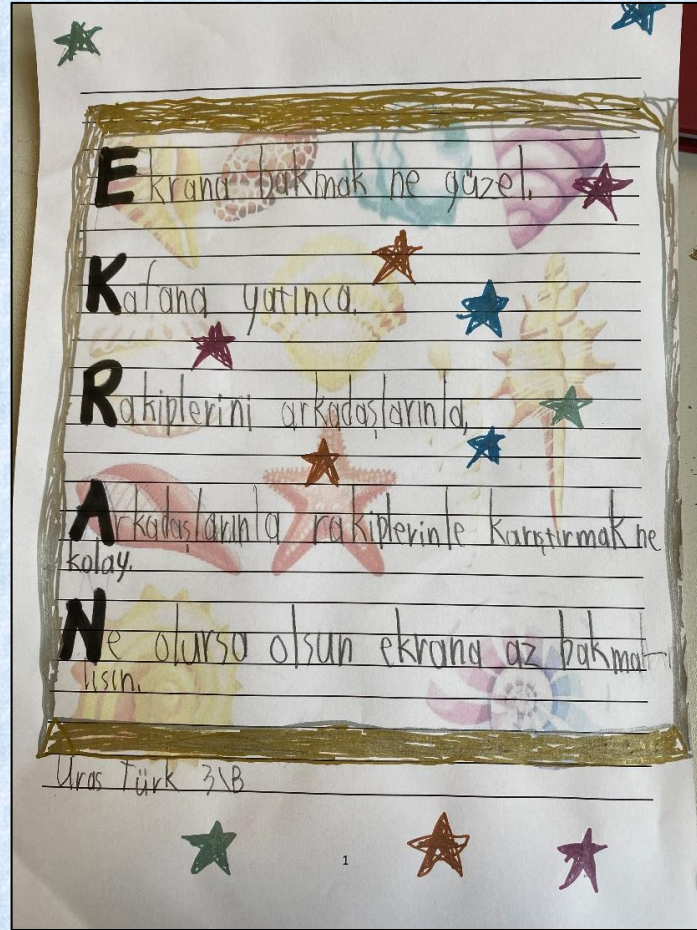 Ekrana bakmak ne güzel.
Kafana yatınca.
Rakiplerini arkadaşlarınla,
Arkadaşlarınla rakiplerinle karıştırmak ne
kolay.
Ne olursa olsun ekrana az bakmal-
lısın.
Uras Türk 3\B
1